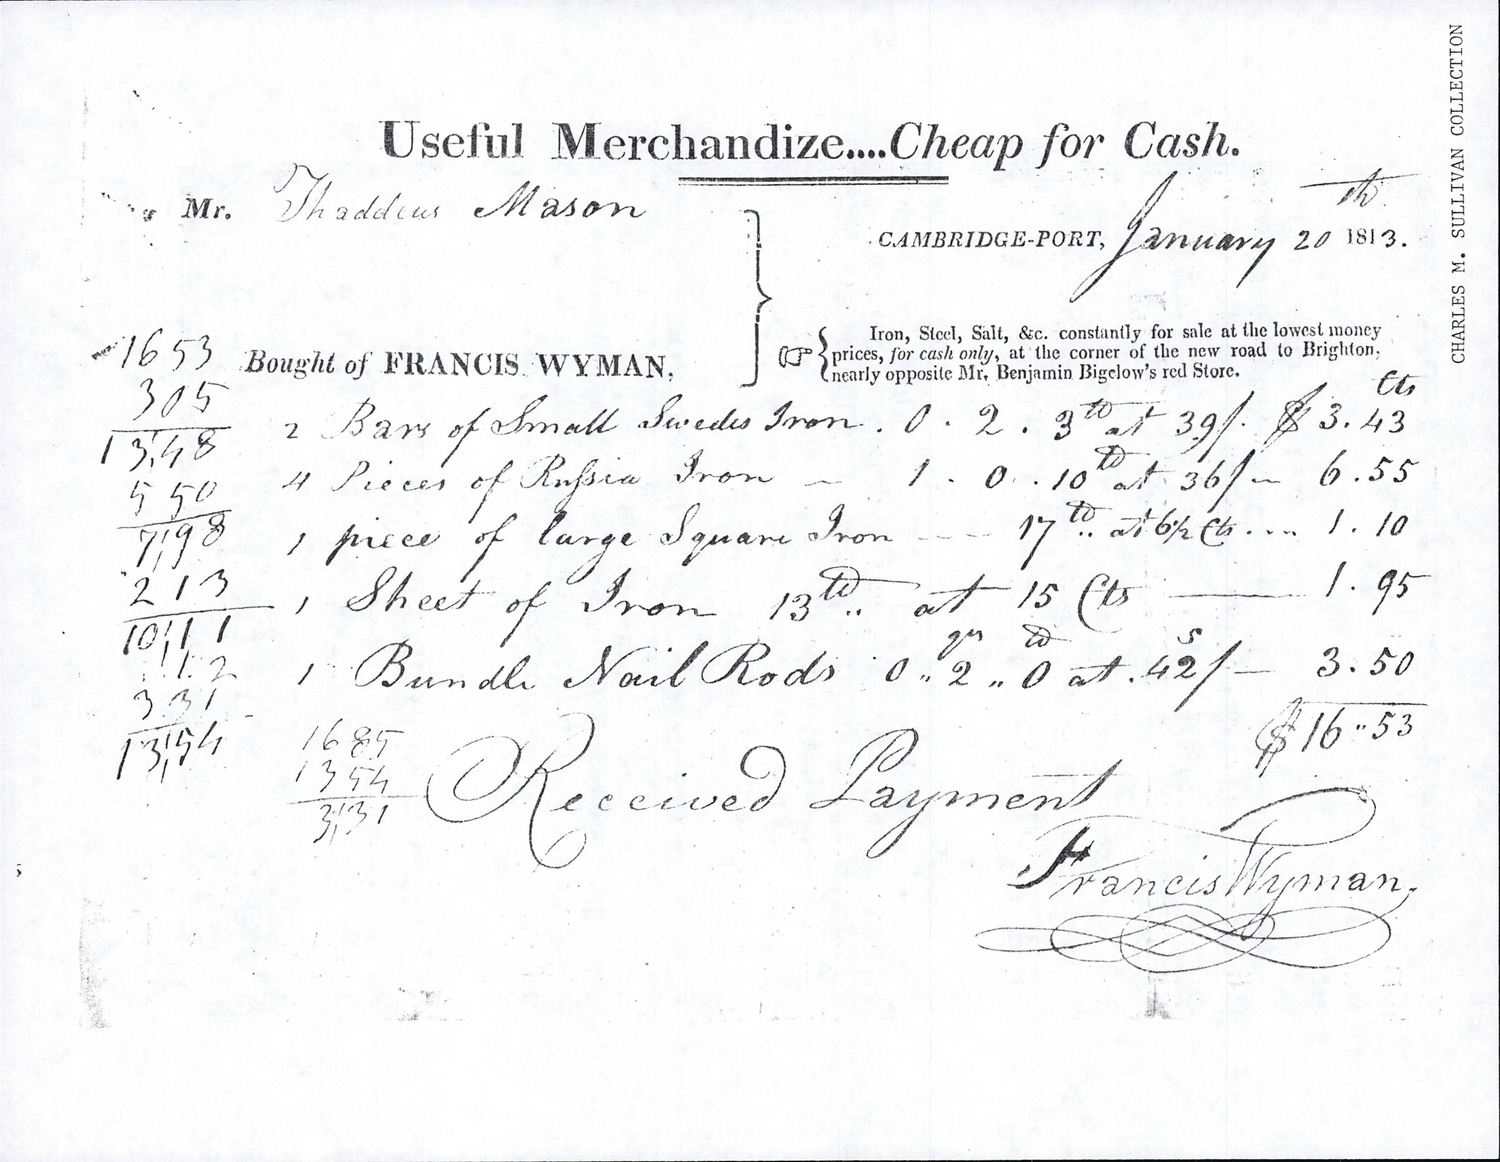 CHARLES M. SULLIVAN COLLECTION
Useful Merchandize....Cheap for Cash.
Mr. Thaddeus Mason
CAMBRIDGE-PORT, January 20th 1813.
Iron, Steel, Salt, &c. constantly for sale at the lowest money
prices, for cash only, at the corner of the new road to Brighton,
nearly opposite Mr. Benjamin Bigelow's red Store.
Bought of FRANCIS WYMAN,
Cts
2 Bars of Small Swedes Iron . 0 . 2 . 3 lb at 39/. $ 3.43
4 Pieces of Russia Iron – 1 . 0 . 10 lb at 36/– 6.55
1 piece of large Square Iron ---- 17 lb .. at 6½ Cts .... 1.10
1 Sheet of Iron 13 lb .. at 15 Cts —— 1.95
qrs lb s
1 Bundle Nail Rods 0 .. 2 .. 0 at .42/— 3.50
$ 16..53
Received Payment
Francis Wyman.
1653
305
13,48
550
7,98
213
10,11
12
331
13,54
1685
1354
3,31